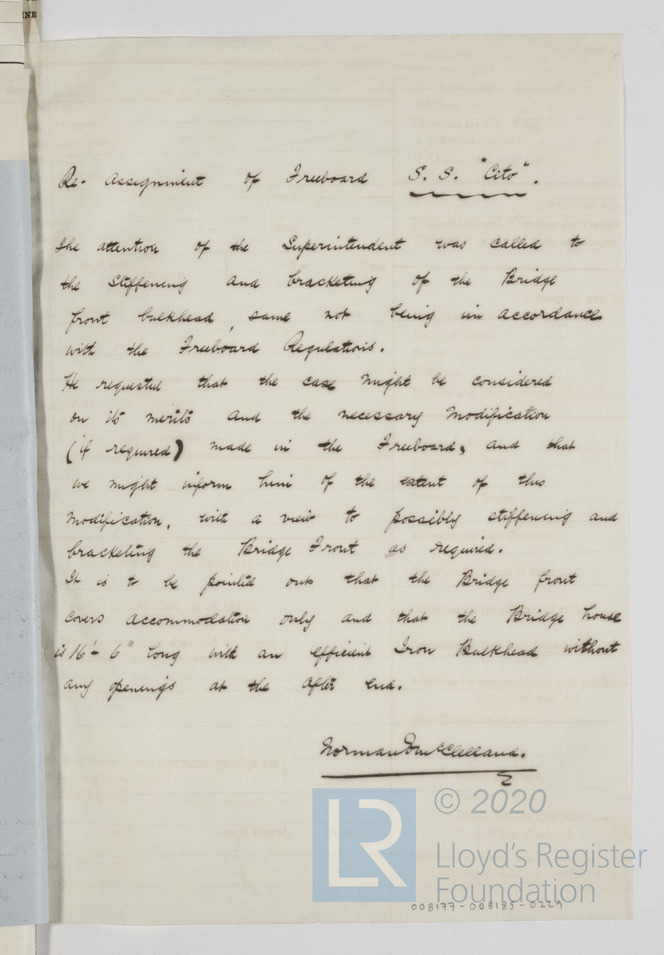 INE
Re-Assignment of Freeboard S. S. "Cito".
The attention of the Superintendent was called to
the stiffening and bracketing of the Bridge
front bulkhead, same not being in accordance
with the Freeboard Regulations.
He requested that the case might be considered
on its merits and the necessary modification
(if required) made in the Freeboard, and that
we might inform him of the extent of this
modification, with a view to possibly stiffening and
bracketing the Bridge Front as required.
It is to be pointed out that the Bridge front
covers accommodation only and that the Bridge house
is 16'-6" long with an efficient Iron Bulkhead without
any openings at the after end.
Norman McClelland.
LR
© 2020
Lloyd's Register
Foundation
008177-008185-0229